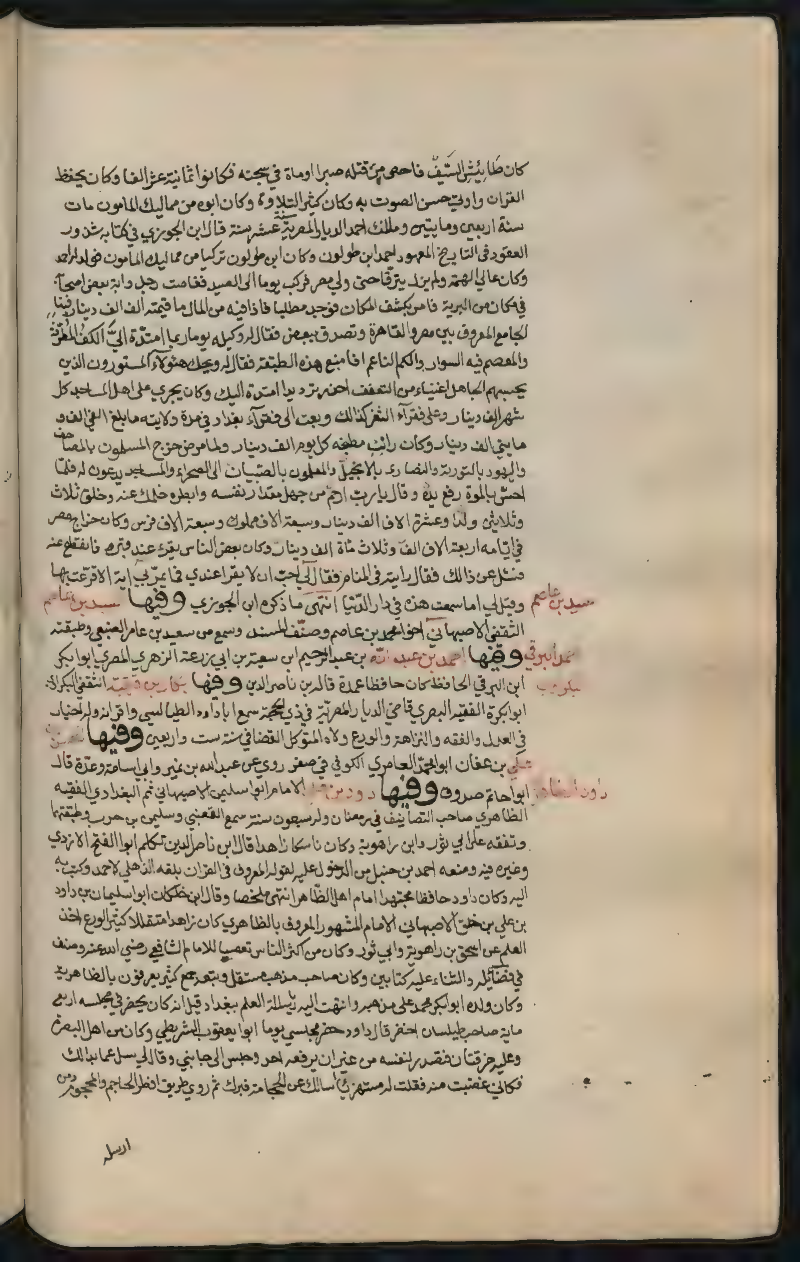 كان طايش السيف فاحصي من قتله صبرا اومات في سجنه فكانوا ثمانية عشر الفا وكان يحفظ
القران واوتي حسن الصوت به وكان كثير التلاوة وكان ابوه من مماليك المامون مات
سنة اربعين ومايتين وملك احمد الديار المصرية عشر سنة قال ابن الجوزي في كتابه شذور
العقود في التاريخ المعهود احمد ابن طولون وكان ابن طولون تركيا من مماليك المامون فولد له احمد
وكان عالي الهمة ولم يزل يترقا حتى ولي مصر فركب يوما الى الصيد فغاصت رجل دابة بعض اصحابه
في مكان من البرية فامر بكشف المكان فوجد مطلبا فاذا فيه من المال ما قيمته الف الف دينار فبنا
الجامع المعروف بين مصر والقاهرة وتصدق ببعض فقال له وكيله يوما ربما امتدت الي الكف المطرفة
والمعصم فيه السوار والكم الناعم افامنع هذه الطبقة فقال له ويحك هولاء المستورون الذين
يحسبهم الجاهل اغنياء من التعفف احذر ترد يدا امتدت اليك وكان يجري على اهل المساجد كل
شهر الف دينار وعلى فقراء الثغر كذالك وبعث الى فقراء بغداد في مدة ولايته ما بلغ الفي الف و
مايتي الف دينار وكان راتب مطبخه كل يوم الف دينار ولما مرض خرج المسلمون بالمصاحف
واليهود بالتورية والنصارى بالانجيل والمعلمون بالصبيان الى الصحراء والمساجد يدعون له فلما
احس بالموت رفع يده وقال يا رب ارحم من جهل مقدار نفسه وابطره حلمك عنه وخلف ثلاث
وثلاثين ولدا وعشرة الاف الف دينار وسبعة الاف مملوك وسبعة الاف فرس وكان خراج مصر
في ايامه اربعة الاف الف وثلاث مائة الف دينار وكان بعض الناس يقرء عند قبره فانقطع عنه
فسئل عن ذالك فقال رايته في المنام فقال لي احب ان لا يقرا عندي فما يمر بي اية الا قرعت بها
وقيل لي اما سمعت هذه في دار الدنيا انتهى ما ذكره ابن الجوزي وفيها سيد بن عاصم
سيد بن عاصم
الثقفي الاصبهاني اخو محمد بن عاصم وصنف المسند وسمع من سعيد بن عامر الضبعي وطبقته
وفيها احمد بن عبد الله بن عبد الرحيم ابن سعية بن ابي زرعة الزهري المصري ابو بكر
ابن البرقي الحافظ كان حافظا عمدة قاله بن ناصر الدين وفيها بكار بن قتيبة الثقفي البكراوي
ابو بكرة الفقيه البصري قاضي الديار المصرية في ذي الحجة سمع ابا داود الطيالسي واقرانه وله اخبار
في العدل والفقه والنزاهة والورع ولاه المتوكل القضا في سنة ست واربعين وفيها
علي بن عفان ابو محمد العامري الكوفي في صفر روي عن عبد الله بن نمير وابي اسامة وعدة قال
ابو حاتم صدوق وفيها داود بن علي الامام ابو سليمن الاصبهاني ثم البغدادي الفقيه
الظاهري صاحب التصانيف في رمضان وله سبعون سنة سمع القعنبي وسليمن بن حرب وطبقتهما
وتفقه على ابي ثور وابن راهوية وكان ناسكا زاهدا قال ابن ناصر الدين تكلم ابو الفتح الازدي
وغيره فيه ومنعه احمد بن حنبل من الدخول عليه لقوله المعروف في القران بلغه الذهلي لاحمد وكتب به
اليه وكان داود حافظا مجتهدا امام اهل الظاهر انتهى ملخصا وقال ابن خلكان ابو سليمان بن داود
بن علي بن خلف الاصبهاني الامام المشهور المعروف بالظاهري كان زاهدا متقللا كثير الورع اخذ
العلم عن اسحق بن راهوية وابي ثور وكان من اكثر الناس تعصبا للامام الشافعي رضي الله عنه وصنف
في فضائله والثناء عليه كتابين وكان صاحب مذهب مستقل وتبعه جمع كثير يعرفون بالظاهرية
وكان ولده ابو بكر محمد على مذهبه وانتهت اليه رياسة العلم ببغداد قيل انه كان يحضر في مجلسه اربع
ماية صاحب طيلسان اخضر قال داود حضر مجلسي يوما ابو يعقوب الشريطي وكان من اهل البصرة
وعليه خرقتان فتصدر لنفسه من غير ان يرفعه احد وجلس الى جانبي وقال لي سل عما بدالك
فكاني غضبت منه فقلت له مستهزئا اسالك عن الحجامة فبرك ثم روي طريق افطر الحاجم والمحجوم ومن
ارسله